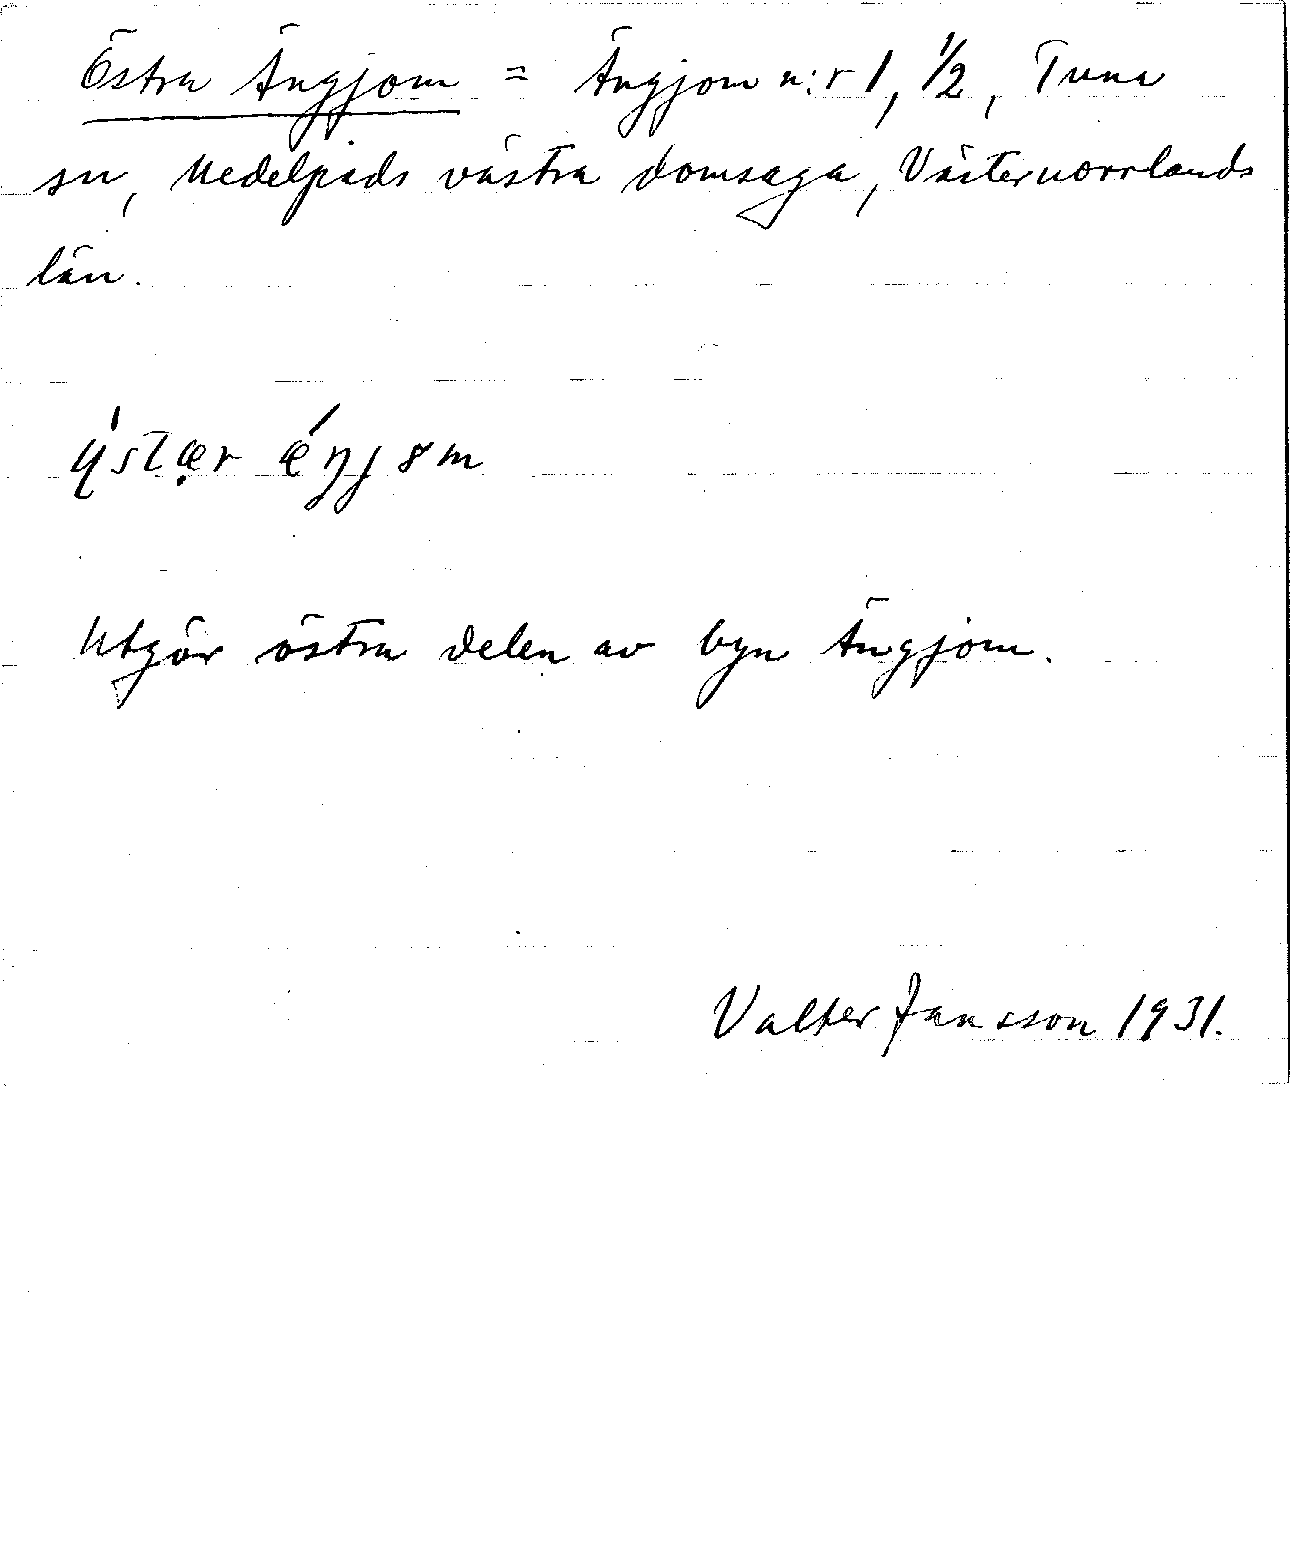 Östra Ängjom = Ängjom n:r 1, 1/2, Tuna
sn, Medelpads västra domsaga, Västernorrlands
län.
ý̨stæ̣r ǽŋjȣm
Utgör östra delen av byn Ängjom.
Valter Jansson 1931.